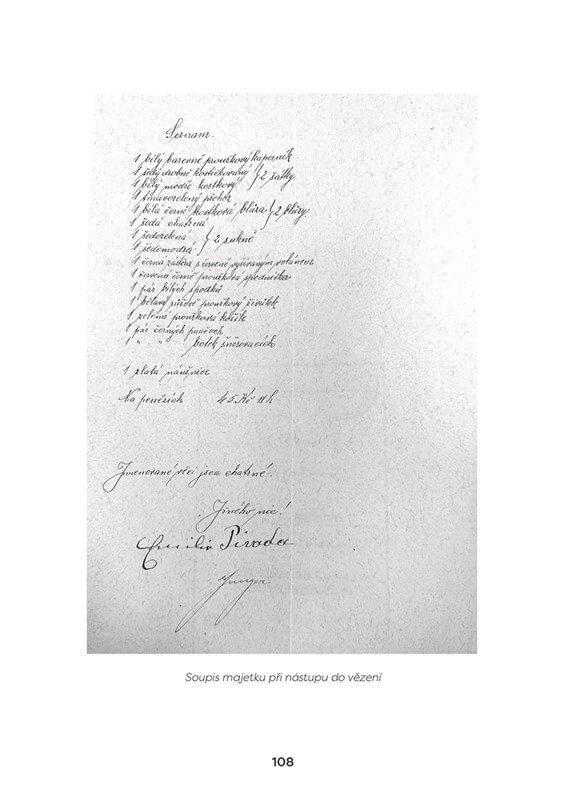 Seznam.
1 bílý barevně proužkový kapesník
1 šedý drobně kostičkovaný } 2 šátky
1 bílý modře kostkový
1 tmavozelený
1 bílá černě kostkova blůza } 2 blůzy
1 šedá chatrná
1 šedozelená } 2 sukně
1 šedomodrá
1 černá zástěra s červeně vyšívaným volánem
1 červená černě proužkova spodnička
1 pár bílých spodků
1 bělavý růžově proužkový živůtek
1 zelená proužková košile
1 pár černých punčoch
1 " " botek šněrovacích
1 zlatá náušnice
Na penězích 45 Kč 11 h
Jmenované věci jsou chatrné.
Jiného nic!
Emilie Pivoda
Soupis majetku při nástupu do vězení
108